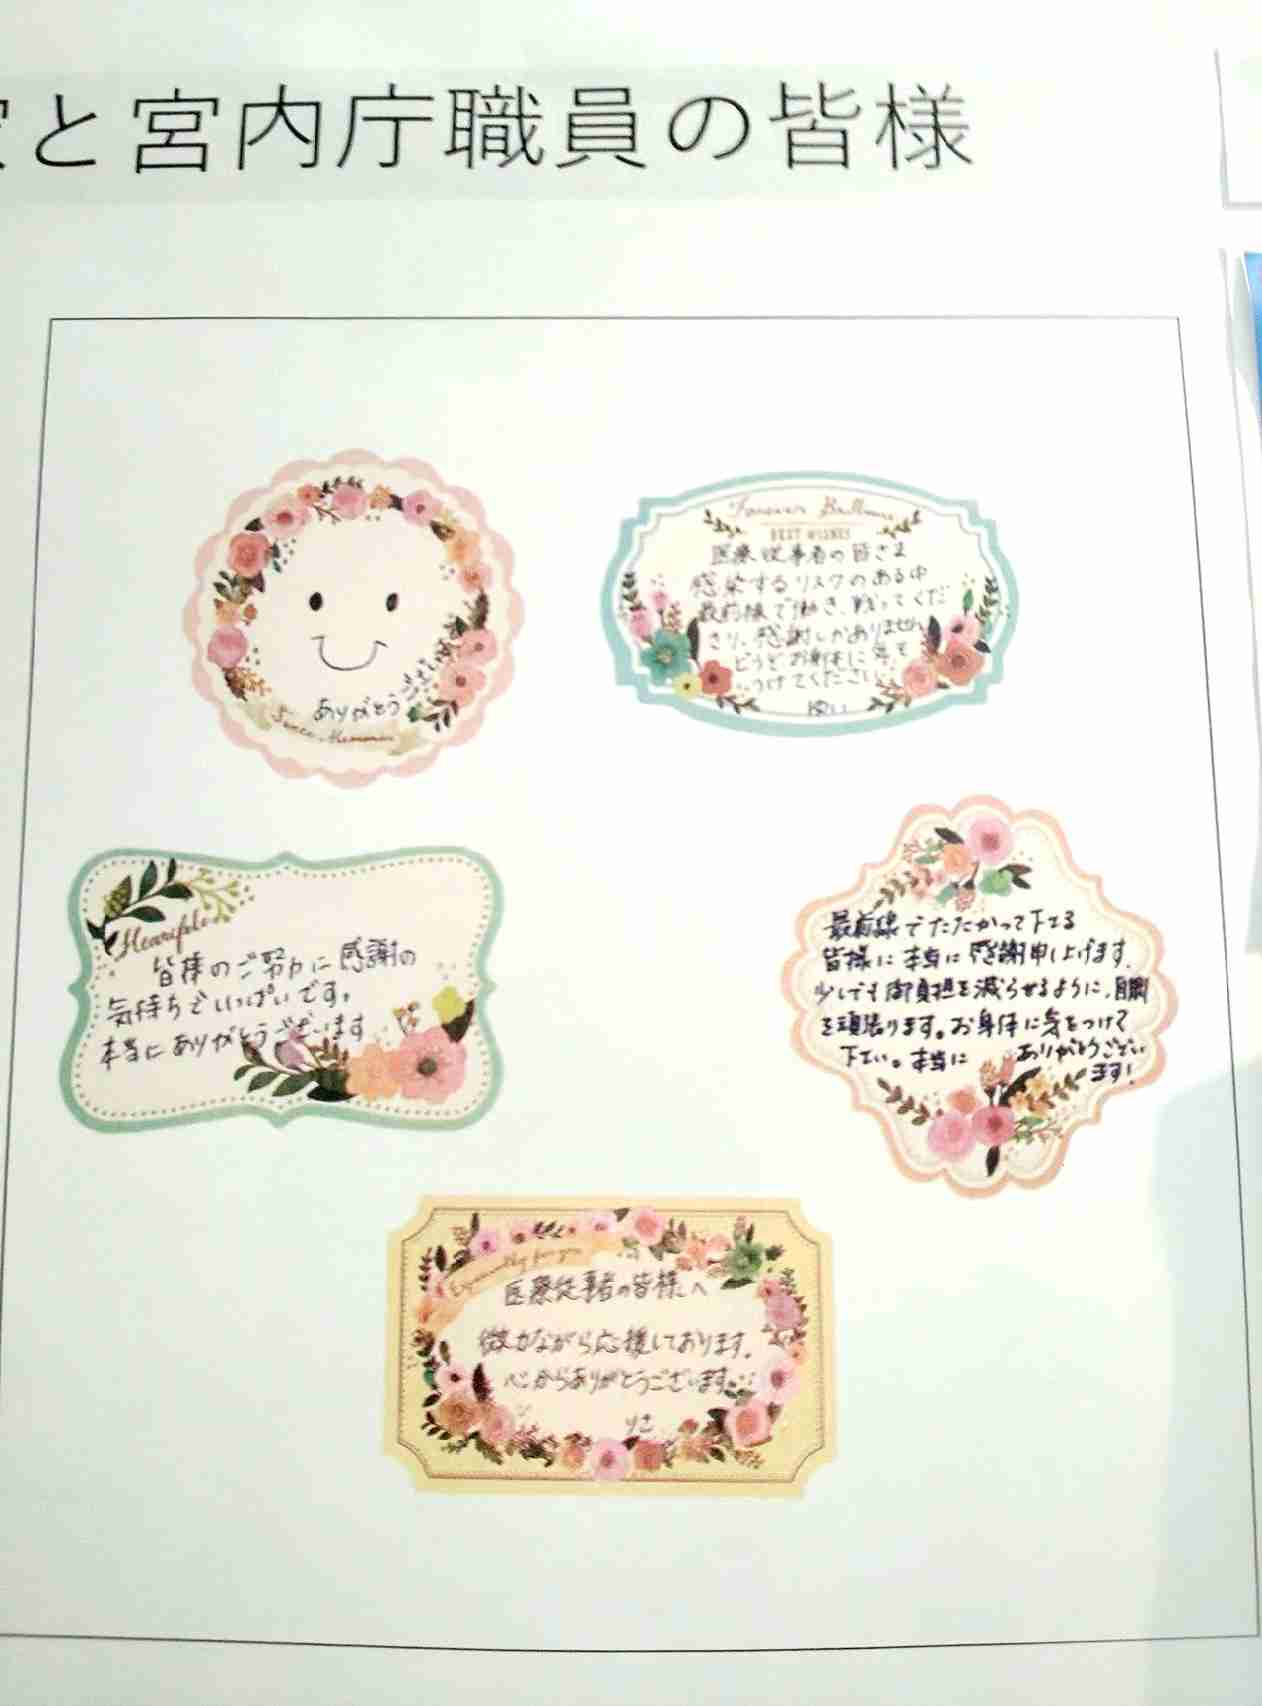 と宮内庁職員の皆様
ありがとう
ございます
Since Memories
Forever Brilliance
BEST WISHES
医療従事者の皆さま
感染するリスクのある中
最前線で働き、戦ってくだ
さり、感謝しかありません
どうぞお身体に気を
つけてください。
皆様のご努力に感謝の
気持ちでいっぱいです。
本当にありがとうございます
最前線でたたかって下てる
皆様に本当に感謝申し上げます。
少しでも御負担を減らせるように、自粛
を頑張ります。お身体に気をつけて
下てい。本当に ありがとうござい
ます!
Especially for you
医療従事者の皆様へ
微力ながら応援しております。
心からありがとうございます。
りさ